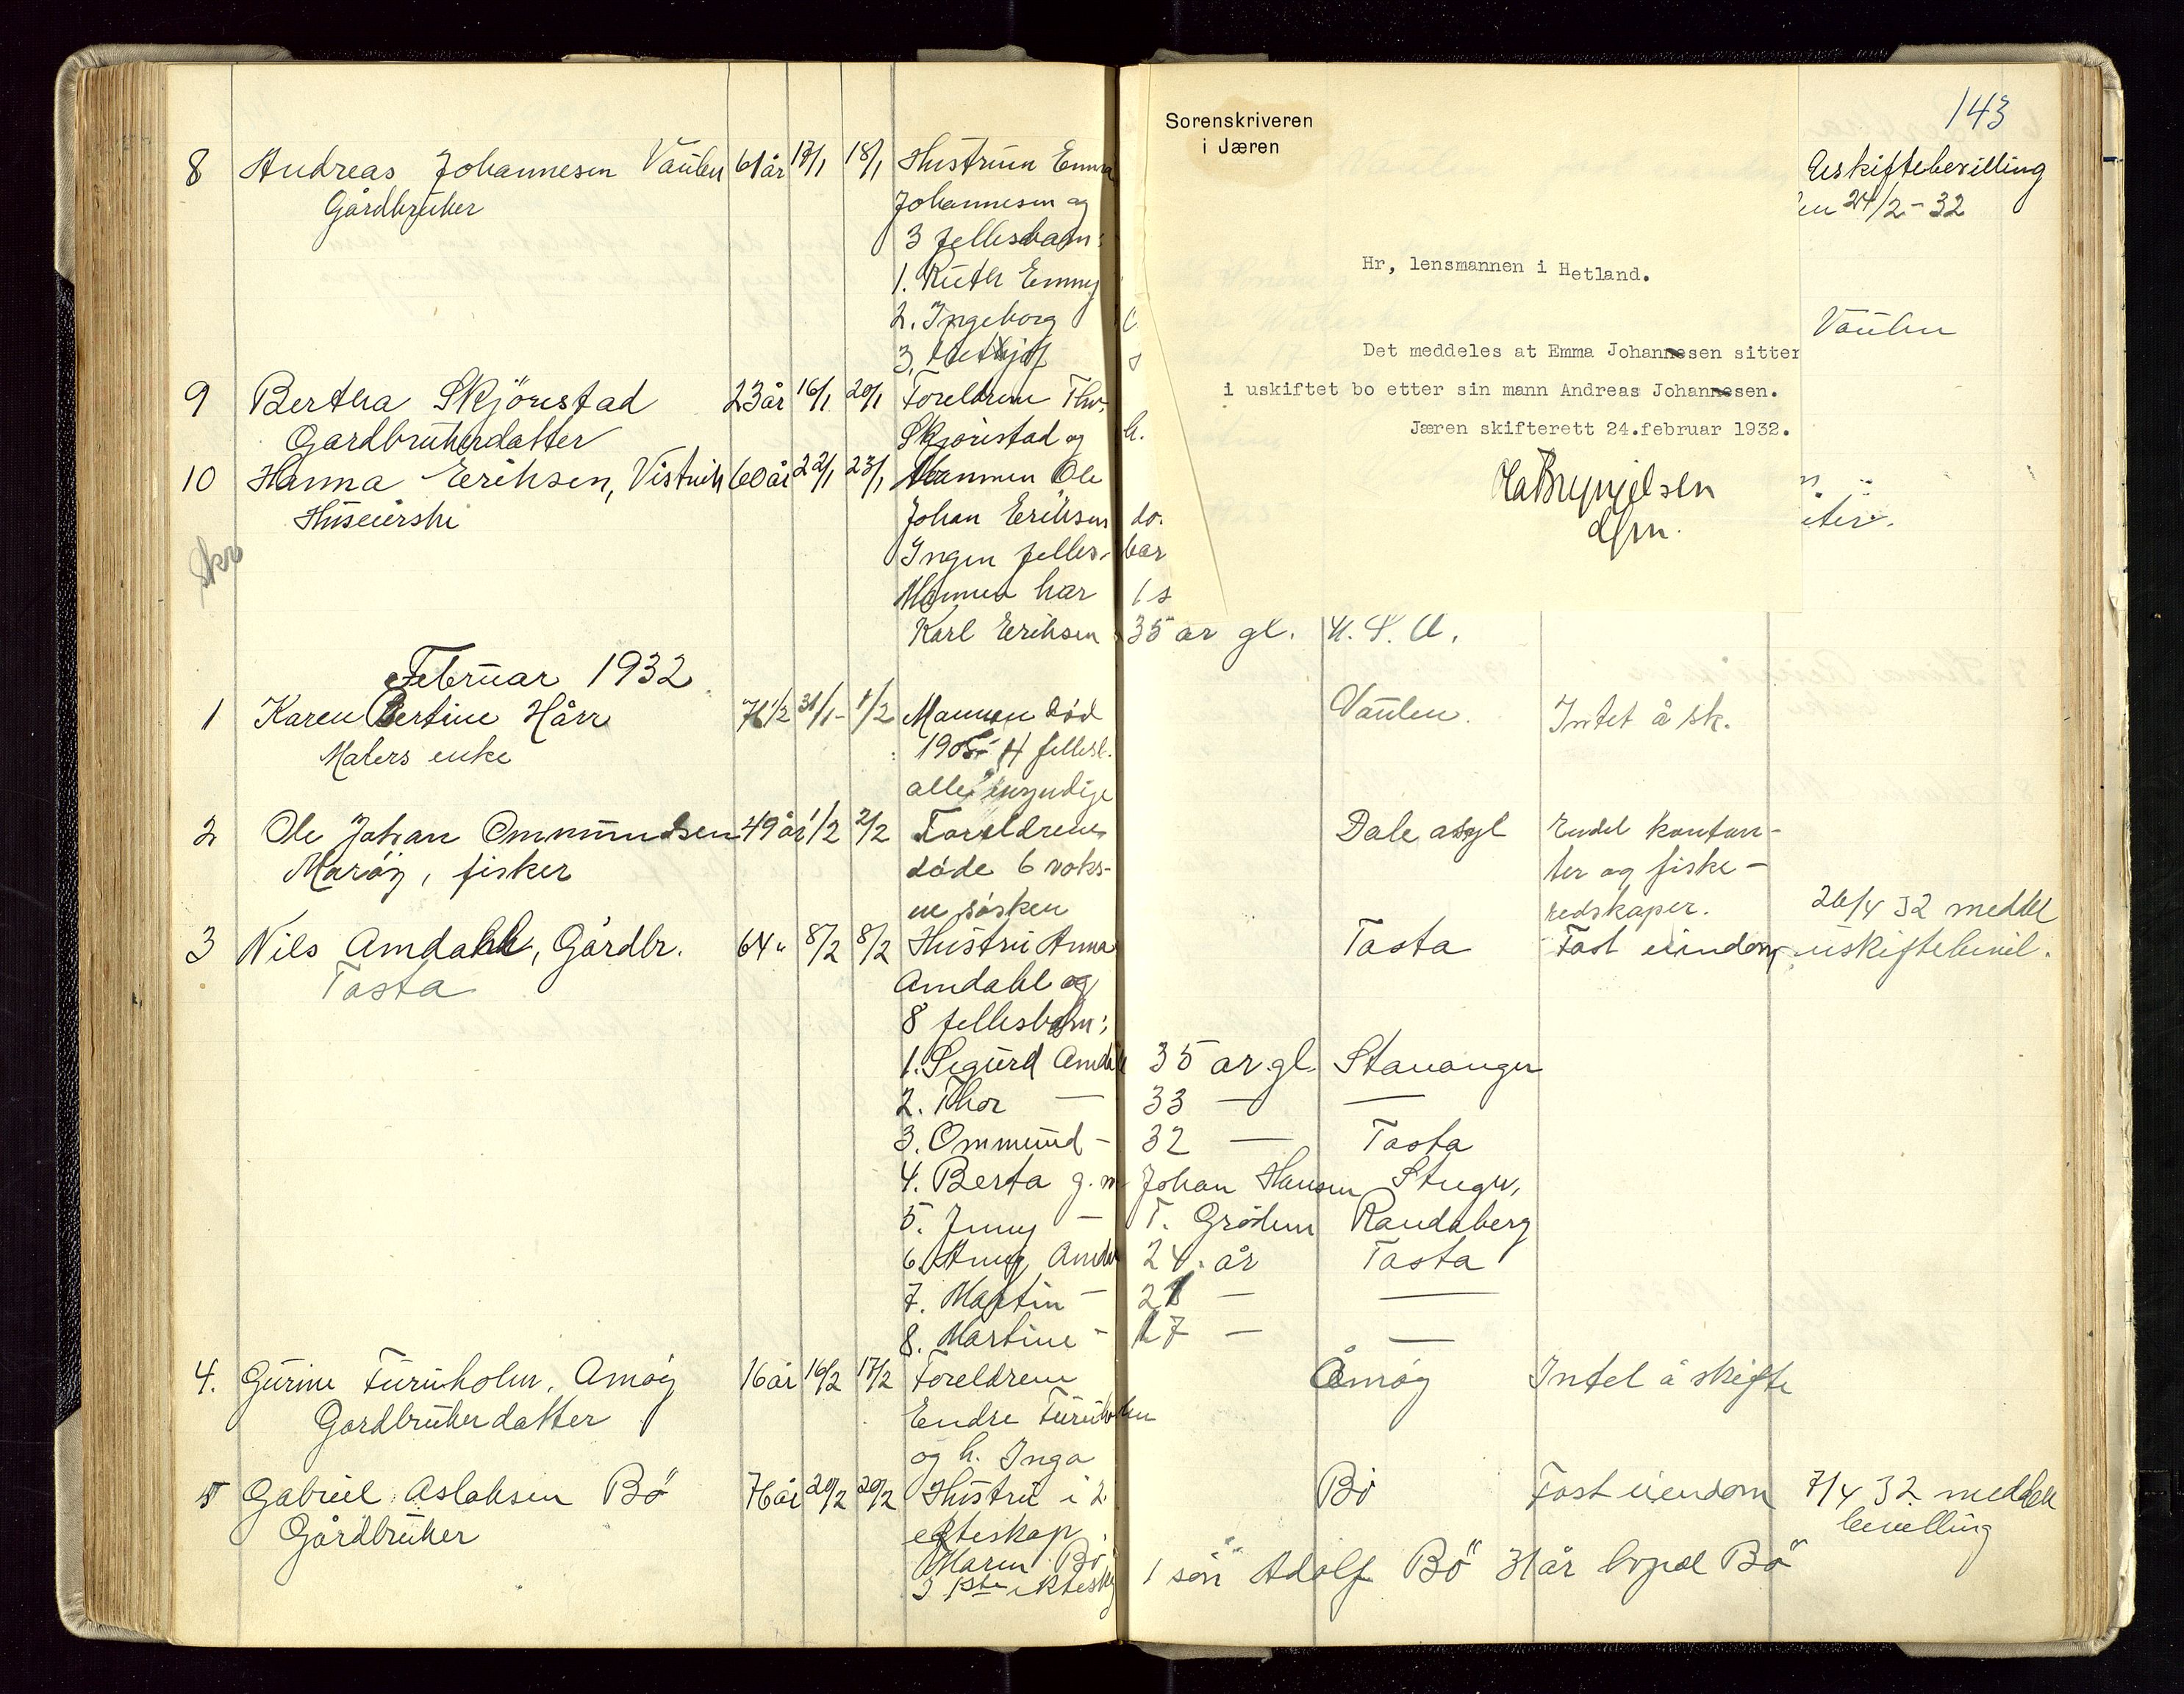 143
Sorenskriveren
i Jæren
Hr, lensmannen i Hetland.
Det meddeles at Emma Johannesen sitter
i uskiftet bo etter sin mann Andreas Johannesen.
Jæren skifterett 24.februar 1932.
8 Andreas Johannesen Vaulen 61 år 17/1 18/1 Hustruen Emma
Uskiftebevilling
Gårdbruker Johannesen og
24/2-32
3 fellesbarn:
1. Ruth Emmy
2. Ingeborg
Vaulen
3.
9 Bertha Skjörestad 23 år 16/1 20/1 Foreldrene
Gardbrukerdatter Skjörestad og h.
10 Hanna Eriksen, Vistvik 60 år 22/1 23/1 Mannen Ole
Huseierske Johan Eriksen do.
Skr Ingen felles- bar
Mannen har 1 s
Karl Eriksen 35 år gl. U.S.A.
Februar 1932
1 Karen Bertine Hårr 71 1/2 31/1 - 1/2 Mannen död Vaulen. Intet å sk.
Malers enke 1905 - 4 fellesb.
alle myndige
2 Ole Johan Ommundsen 49 år 1/2 2/2 Foreldrene Dale asyl Endel kontan-
Marøy, fisker döde 6 voks- ter og fiske-
ne søsken redskaper. 26/4 32 meddel
3 Nils Amdahl, Gårdbr. 64 " 8/2 8/2 Hustru Anna Tasta Fast eiendom uskiftebevil.
Tasta Amdahl og
8 fellesbarn:
1. Sigurd Amdahl 35 år gl. Stavanger
2. Thor — 33 — —
3. Ommund - 32 — Tasta
4. Berta g. m Johan Hansen Stvgr,
5. Jenny — T. Grödem Randaberg
6. Amdahl 24. år Tasta
7. Martin — 21 — —
8. Martine - 17 — —
4. Gurine Furuholm, Amøy 16 år 16/2 17/2 Foreldrene Åmøy Intet å skifte
Gardbrukerdatter Endre Furuholm
og h. Inga
5 Gabriel Aslaksen Bö 76 år 20/2 20/2 Hustru i 2. Bö Fast eiendom 7/4 32 meddelt
Gårdbruker ekteskap bevilling
Maren Bö,
I 1ste ekteskap 1 sön Adolf Bö 31 år bopæl Bö